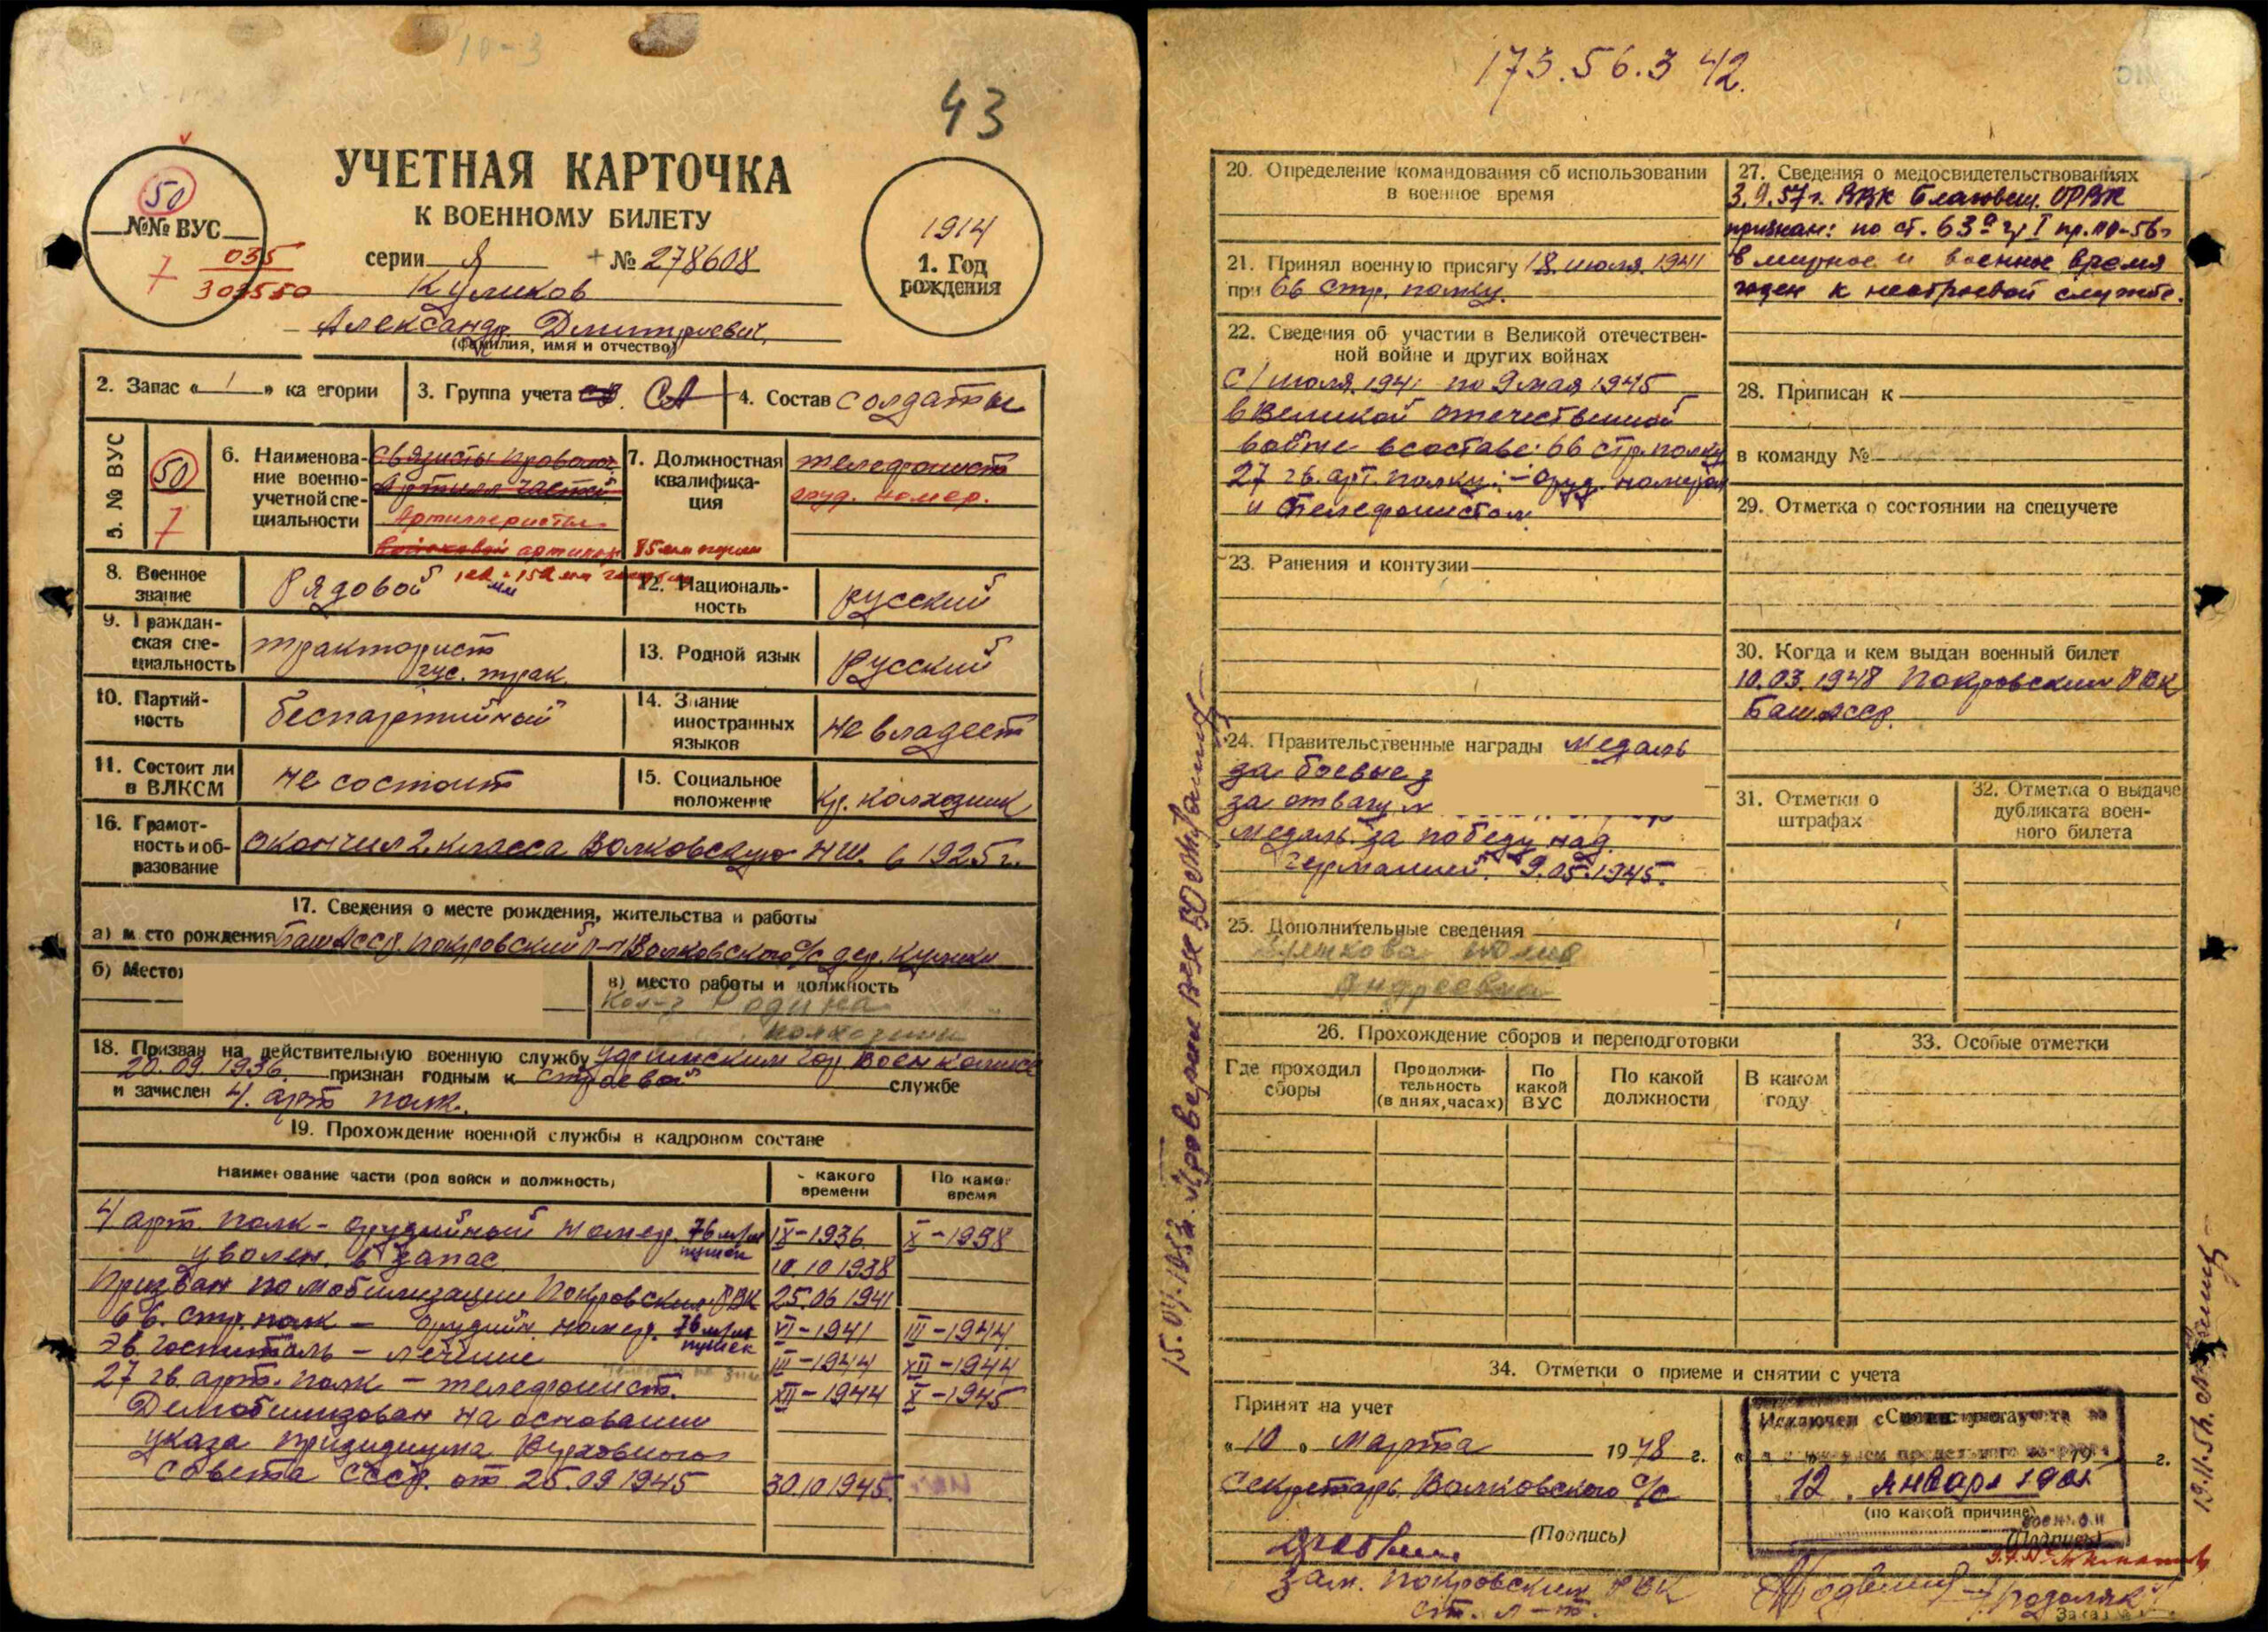 43
УЧЕТНАЯ КАРТОЧКА
К ВОЕННОМУ БИЛЕТУ
50
№№ ВУС
7 035
303550
серии Я № 278608
Куликов
Александр Дмитриевич
(фамилия, имя и отчество)
1914
1. Год
рождения
2. Запас « 1 » ка егории
3. Группа учета СА
4. Состав солдаты
5. № ВУС
50
7
6. Наименова-
ние военно-
учетной спе-
циальности
Артиллеристы
7. Должностная
квалифика-
ция
телефонист
оруд. номер.
8. Военное
звание
Рядовой
9. Граждан-
ская спе-
циальность
тракторист
гус. трак.
10. Партий-
ность
беспартийный
11. Состоит ли
в ВЛКСМ
не состоит
12. Националь-
ность
русский
13. Родной язык
Русский
14. Знание
иностранных
языков
не владеет
15. Социальное
положение
кр. колхозник
16. Грамот-
ность и об-
разование
окончил 2 класса Волковскую НШ. в 1925 г.
17. Сведения о месте рождения, жительства и работы
а) м сто рождения БашАССР. Покровский р-н Волковского с/с дер. Кулики
б) Место
в) место работы и должность
Кол-з Родина
колхозник
18. Призван на действительную военную службу Уфимским гор. Военкомис
20.09.1936 признан годным к строевой службе
и зачислен 4. арт полк.
19. Прохождение военной службы в кадровом составе
Наименование части (род войск и должность)
какого
времени
По како
время
4 арт. полк - орудийный номер. 76 м/м пушек IX-1936 X-1938
уволен. в запас 10.10 1938
Призван по мобилизации Покровским РВК 25.06 1941
66. стр. полк - орудийн. номер. 76 м/м пушек VI-1941 III-1944
эв. госпиталь - лечение III-1944 XII-1944
27 гв. арт. полк - телефонист. XII-1944 X-1945
Демобилизован на основании
указа призидиума Верховного
Совета СССР. от 25.09 1945 30.10 1945.
173.56.3 42.
20. Определение командования об использовании
в военное время
21. Принял военную присягу 18 июля 1941
при 66 стр. полку.
22. Сведения об участии в Великой отечествен-
ной войне и других войнах
С 1 июля 1941 по 9 мая 1945
в Великой отечественной
войне в составе: 66 стр. полку
27 гв. арт. полку: - оруд. номером
и телефонистом
23. Ранения и контузии
24. Правительственные награды медаль
за боевые з
за отвагу
медаль за победу над
германией. 9.05.1945.
25. Дополнительные сведения
Куликова Юлия
Андреевна
26. Прохождение сборов и переподготовки
Где проходил
сборы
Продолжи-
тельность
(в днях, часах)
По
какой
ВУС
По какой
должности
В каком
году
27. Сведения о медосвидетельствованиях
3.9.57 г. ВВК Благовещ. ОРВК
признан: по ст. 63а гр I пр.
в мирное и военное время
годен к нестроевой службе.
28. Приписан к
в команду №
29. Отметка о состоянии на спецучете
30. Когда и кем выдан военный билет
10.03.1948 Покровским РВК
БашАССР.
31. Отметки о
штрафах
32. Отметка о выдаче
дубликата воен-
ного билета
33. Особые отметки
34. Отметки о приеме и снятии с учета
Принят на учет
« 10 » марта 1948 г.
Секретарь Волковского с/с
(Подпись)
Зам. Покровским РВК
ст. л-т.
Исключен с учета
12 января
(по какой причине)
(Подпись)